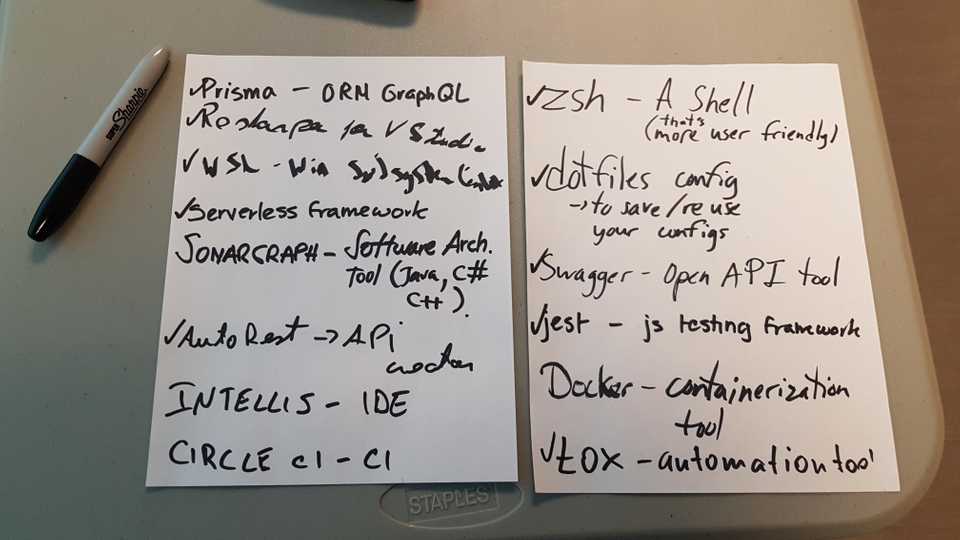 Sharpie
✓Prisma - ORM GraphQL
✓Resharper for VStudio
✓WSL - Win Subsystem Linux
✓Serverless framework
SONARGRAPH - Software Arch.
Tool (Java, C#
C++).
✓AutoRest → API
creation
INTELLIS - IDE
CIRCLE CI - CI
✓zsh - A Shell
(that's
more user friendly)
✓dotfiles config
→ to save/re use
your configs
✓Swagger - Open API tool
✓jest - js testing framework
Docker - containerization
tool
✓tox - automation tool
STAPLES